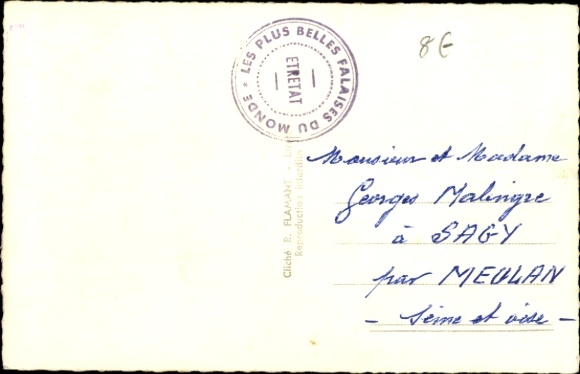 8€
LES PLUS BELLES FALAISES DU MONDE *
ETRETAT
Cliché R. FLAMANT
Reproduction interdite
Monsieur et Madame
Georges Malingre
à SAGY
par MEULAN
- Seine et oise -